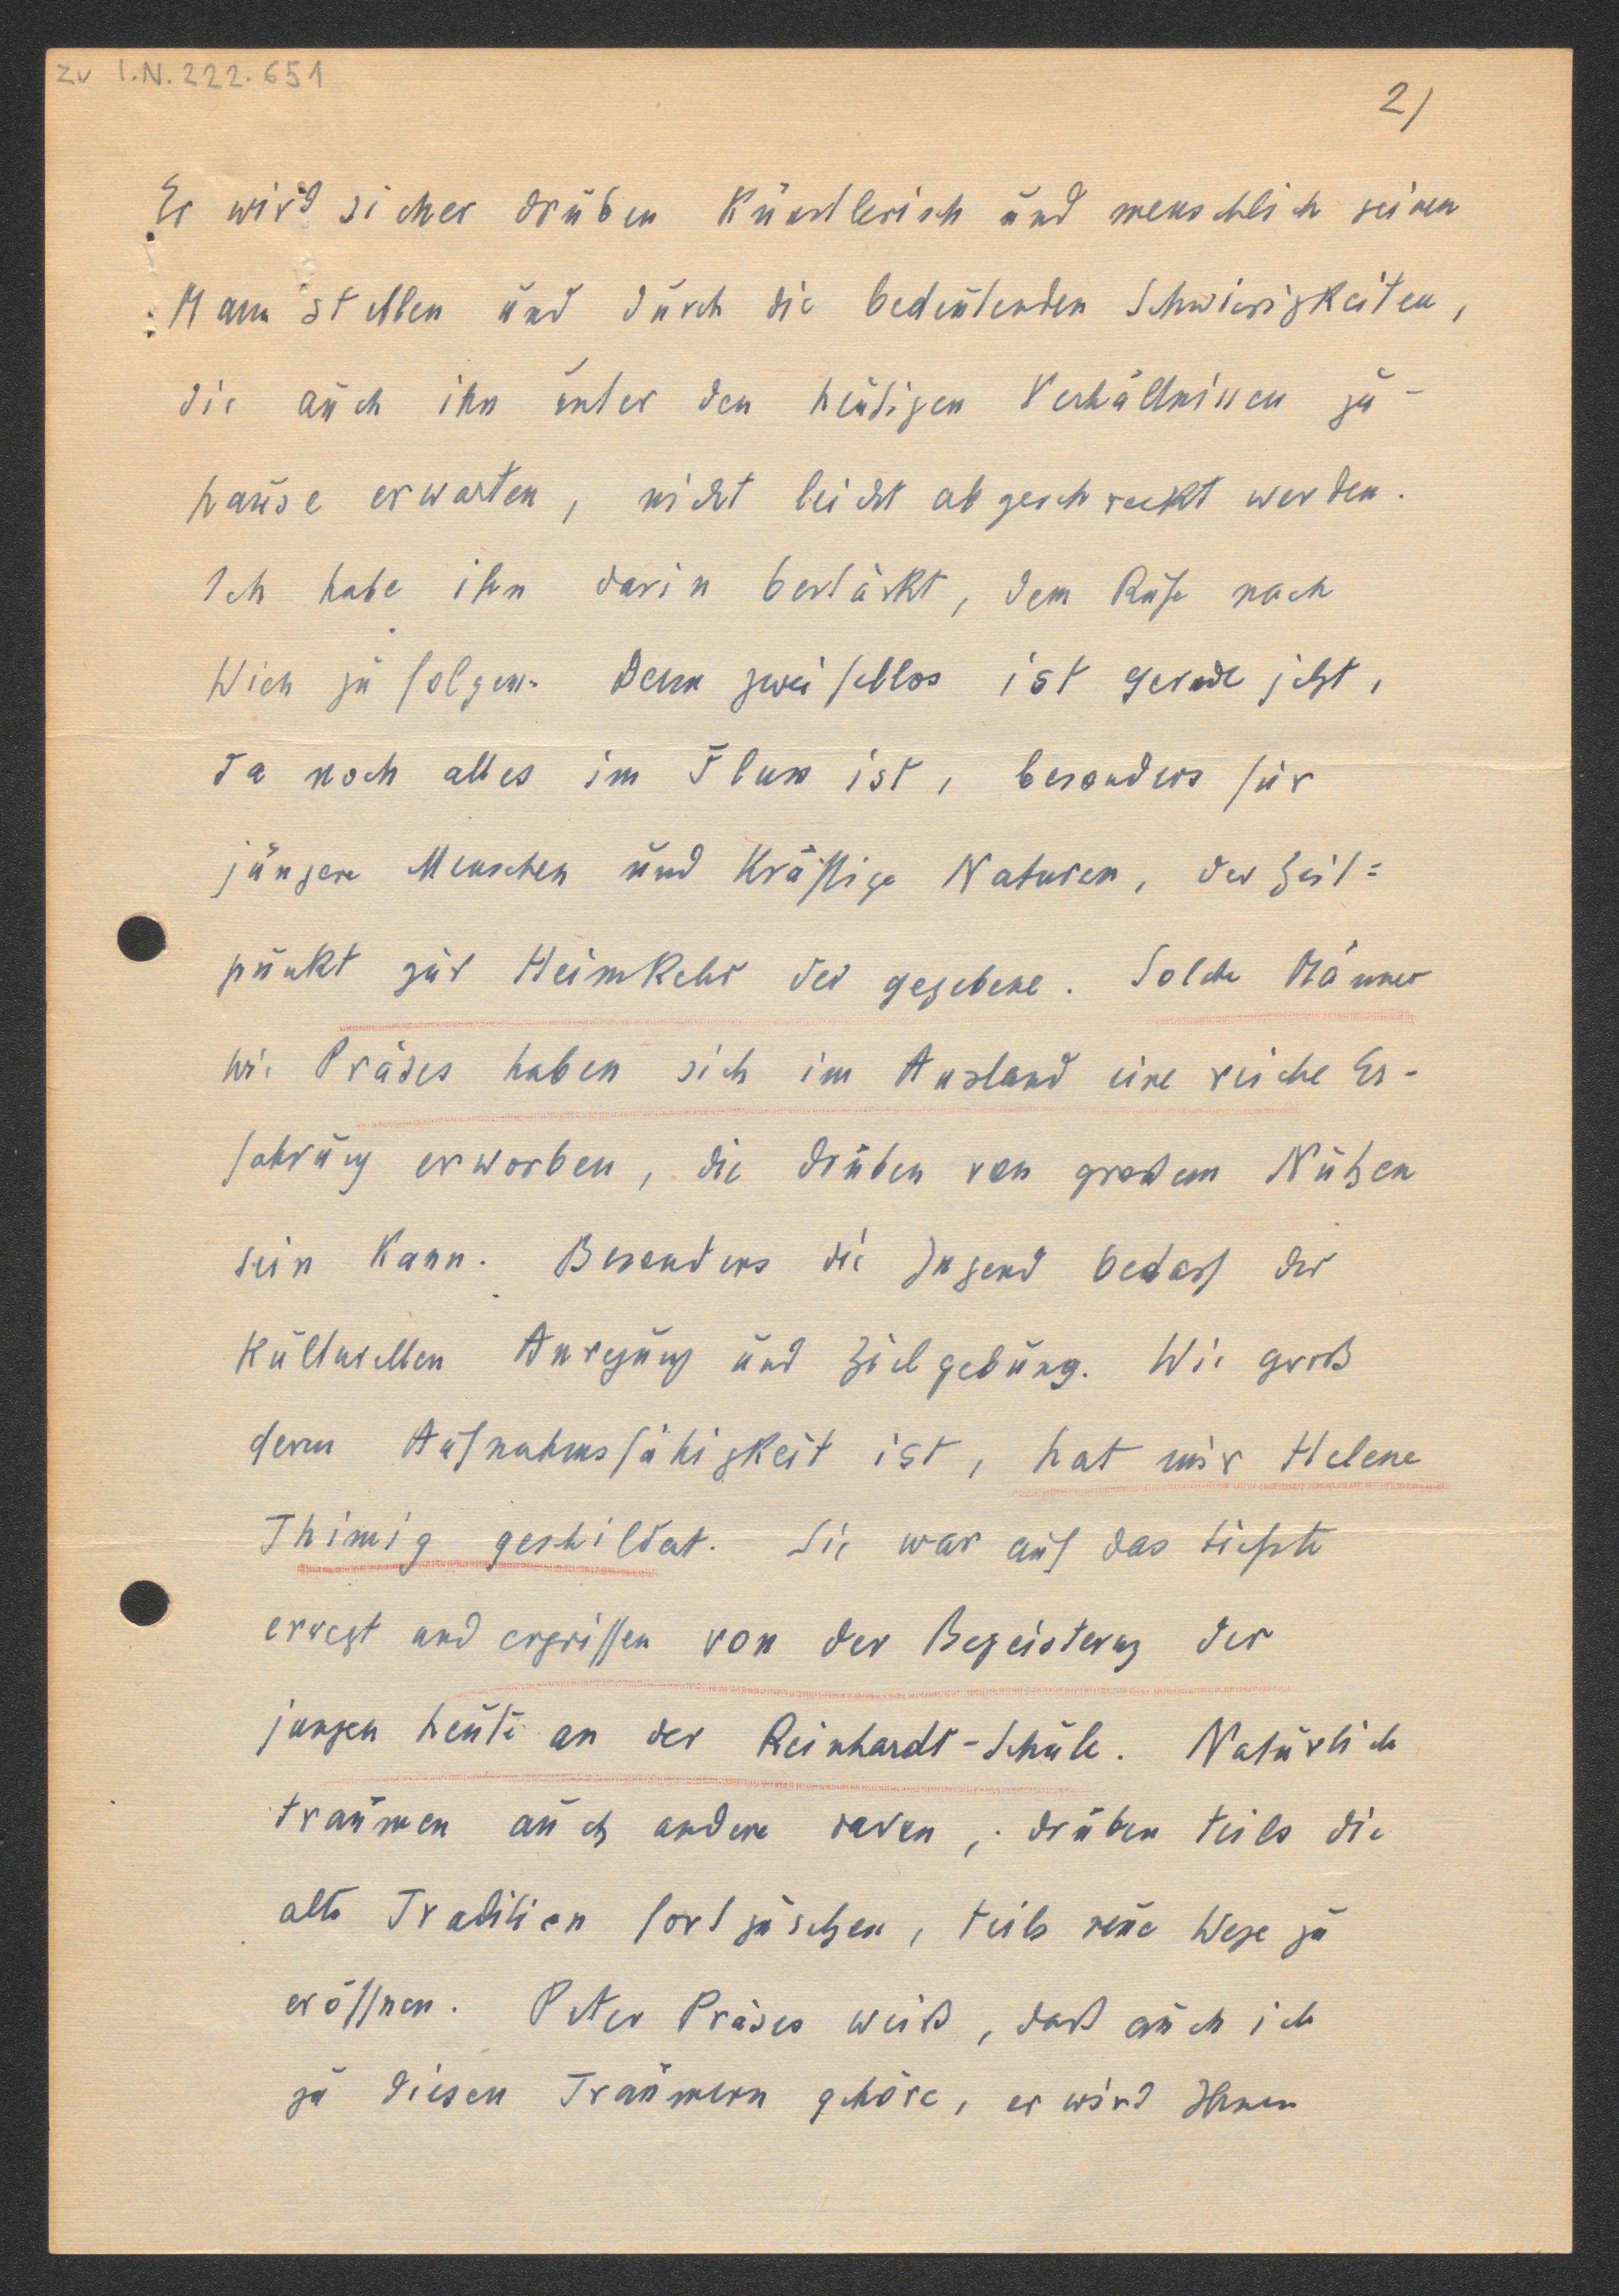 zu I.N. 222.651
2/
Er wird sicher drüben künstlerisch und menschlich seinen
Mann stellen und durch die bedeutenden Schwierigkeiten,
die auch ihn unter den heutigen Verhältnissen zu-
hause erwarten, nicht leicht abgeschreckt werden.
Ich habe ihn darin bestärkt, dem Rufe nach
Wien zu folgen. Denn zweifellos ist gerade jetzt,
da noch alles im Fluss ist, besonders für
jüngere Menschen und kräftige Naturen, der Zeit=
punkt zur Heimkehr der gegebene. Solche Männer
wie Präses haben sich im Ausland eine reiche Er-
fahrung erworben, die drüben von großem Nutzen
sein kann. Besonders die Jugend bedarf der
kulturellen Anregung und Zielgebung. Wie groß
deren Aufnahmsfähigkeit ist, hat mir Helene
Thimig geschildert. Sie war auf das tiefste
erregt und ergriffen von der Begeisterung der
jungen Leute an der Reinhardt-Schule. Natürlich
träumen auch andere davon, drüben teils die
alte Tradition fortzusetzen, teils neue Wege zu
eröffnen. Peter Präses weiß, daß auch ich
zu diesen Träumern gehöre, er wird Ihnen